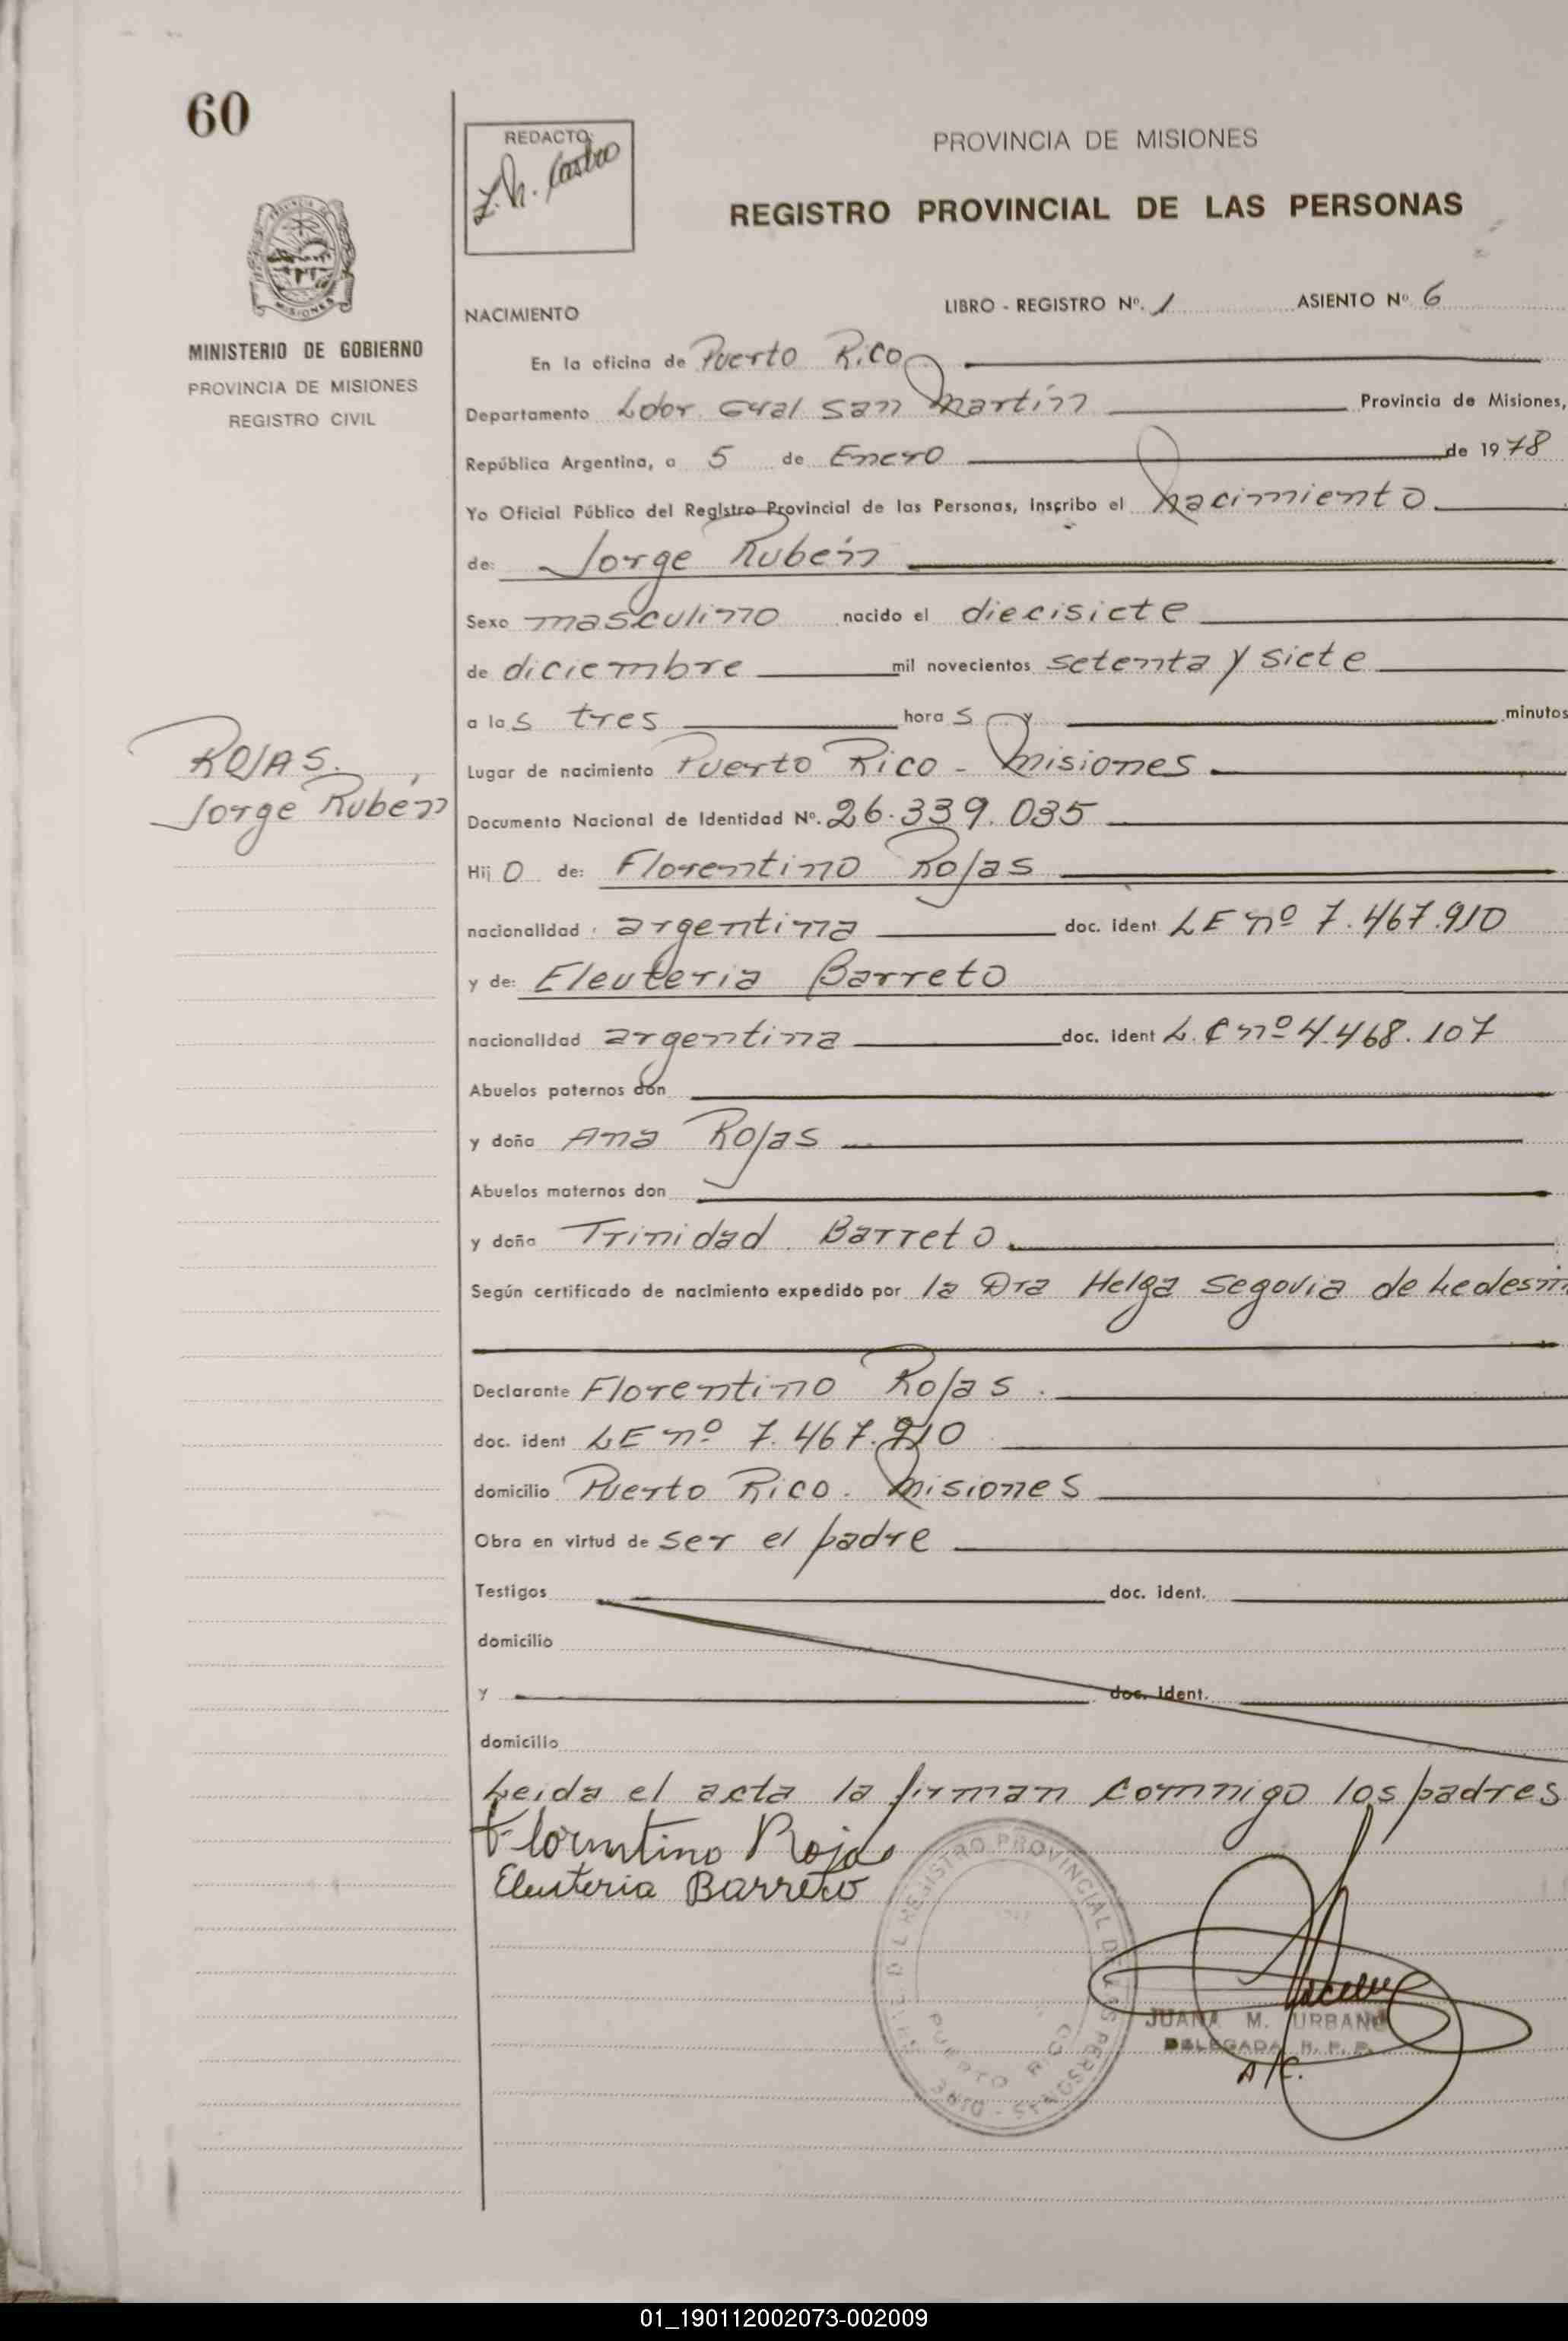 60
REDACTO:
Z. N. Castro
PROVINCIA DE MISIONES
REGISTRO PROVINCIAL DE LAS PERSONAS
MISIONES
MINISTERIO DE GOBIERNO
PROVINCIA DE MISIONES
REGISTRO CIVIL
NACIMIENTO LIBRO - REGISTRO Nº. 1 ASIENTO Nº 6
En la oficina de Puerto Rico
Departamento Ldor. Gral San Martín Provincia de Misiones,
República Argentina, a 5 de Enero de 1978
Yo Oficial Público del Registro Provincial de las Personas, inscribo el nacimiento
de: Jorge Rubén
Sexo masculino nacido el diecisiete
de diciembre mil novecientos setenta y siete
a las tres horas y minutos
ROJAS.
Jorge Rubén
Lugar de nacimiento Puerto Rico - Misiones
Documento Nacional de Identidad Nº. 26.339.035
Hijo de: Florentino Rojas
nacionalidad argentina doc. ident LE nº 7.467.910
y de: Eleuteria Barreto
nacionalidad argentina doc. ident L.C nº 4.468.107
Abuelos paternos don
y doña Ana Rojas
Abuelos maternos don
y doña Trinidad Barreto
Según certificado de nacimiento expedido por la Dra Helga Segovia de Ledesm
Declarante Florentino Rojas.
doc. ident LE nº 7.467.910
domicilio Puerto Rico. Misiones
Obra en virtud de ser el padre
Testigos doc. ident.
domicilio
y doc. ident.
domicilio
Leida el acta la firman conmigo los padres
Florentino Rojas
Eleuteria Barreto
REGISTRO PROVINCIAL DE LAS PERSONAS
PUERTO RICO
JUANA M. URBANO
DELEGADA R. P. P.
A/C.
01_190112002073-002009